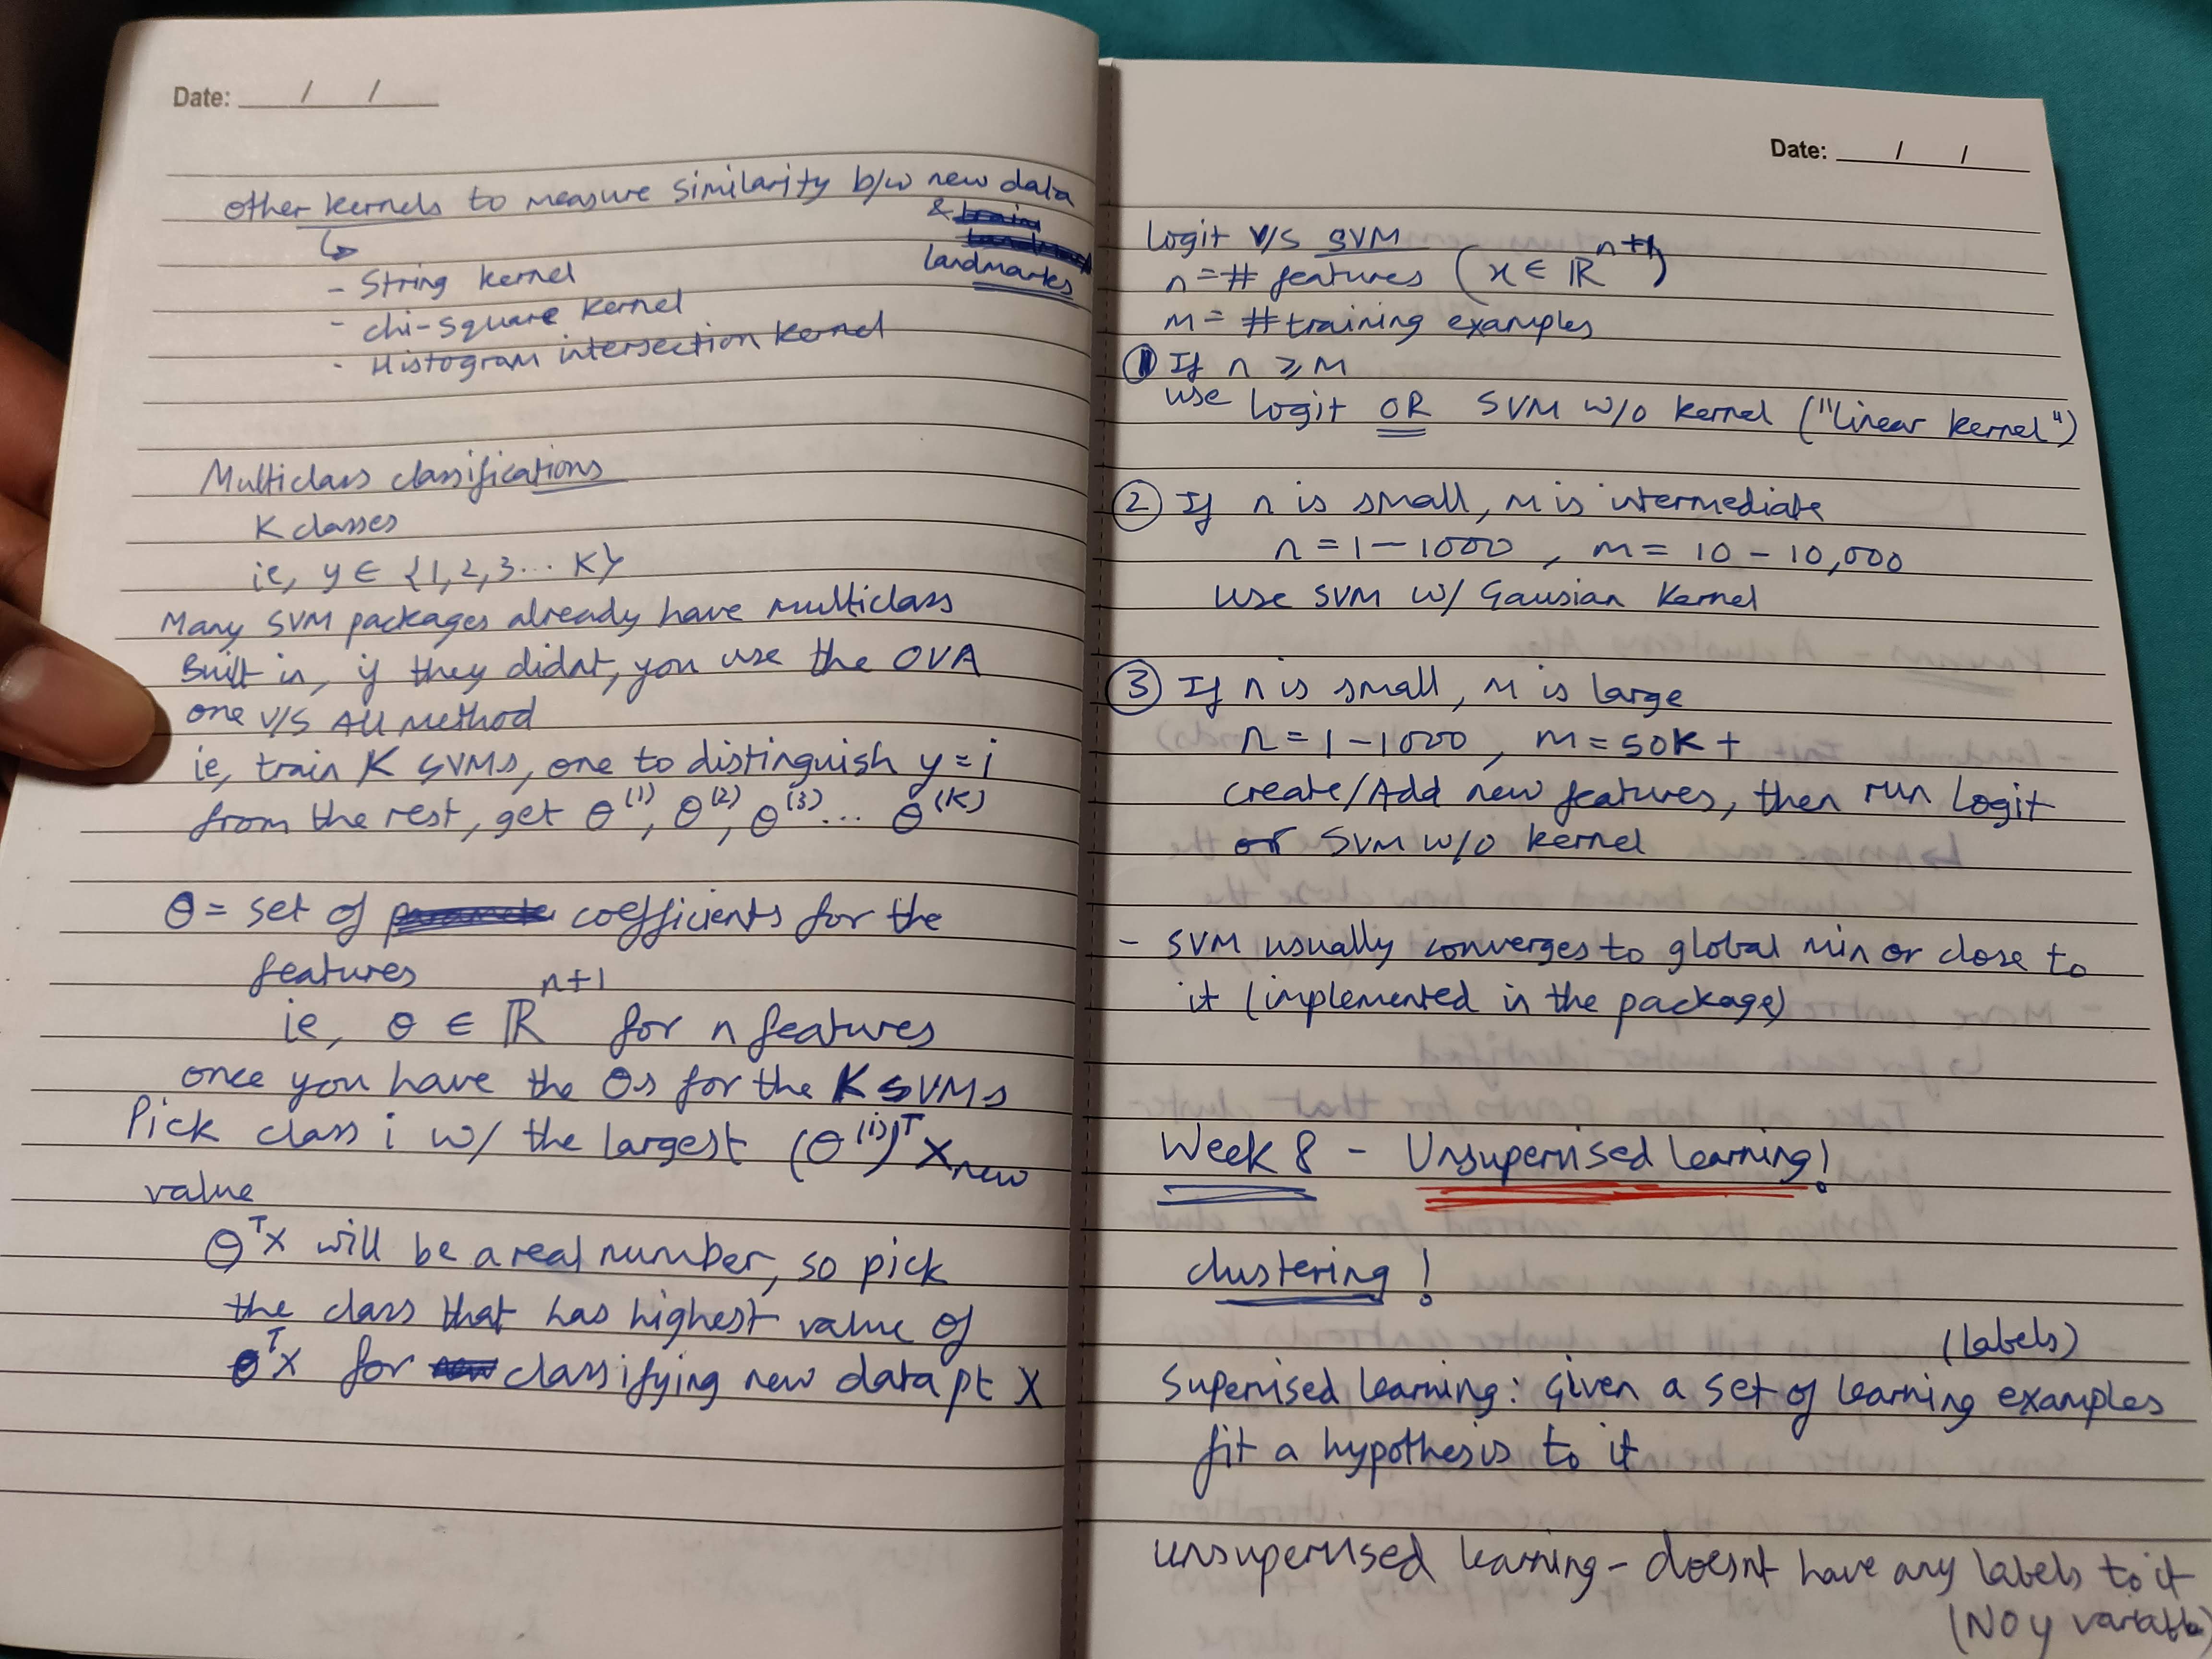 Date: ___/___/___
other kernels to measure similarity b/w new data
& train
landmarks
↳
- String kernel
- chi-square kernel
- Histogram intersection kernel
Multiclass classifications
K classes
ie, y ∈ {1,2,3... K}
Many SVM packages already have multiclass
Built in, if they didnt, you use the OVA
one v/s All method
ie, train K SVMs, one to distinguish y = i
from the rest, get θ^(1), θ^(2), θ^(3)... θ^(K)
θ = set of coefficients for the
features
ie, θ ∈ ℝ^n+1 for n features
once you have the θs for the K SVMs
Pick class i w/ the largest (θ^(i))^T X_new
value
θ^T X will be a real number, so pick
the class that has highest value of
θ^T X for new classifying new data pt X
Date: ___/___/___
Logit v/s SVM
n = # features (x ∈ ℝ^n+1)
m = # training examples
① If n ⩾ m
use logit OR SVM w/o kernel ("linear kernel")
② If n is small, m is intermediate
n = 1 - 1000, m = 10 - 10,000
use SVM w/ Gausian Kernel
③ If n is small, m is large
n = 1 - 1000, m = 50K +
create/Add new features, then run Logit
or SVM w/o kernel
- SVM usually converges to global min or close to
it (implemented in the package)
Week 8 - Unsupervised Learning!
clustering!
(labels)
Supervised learning: Given a set of learning examples
fit a hypothesis to it
unsupervised learning - doesnt have any labels to it
(No y variable)